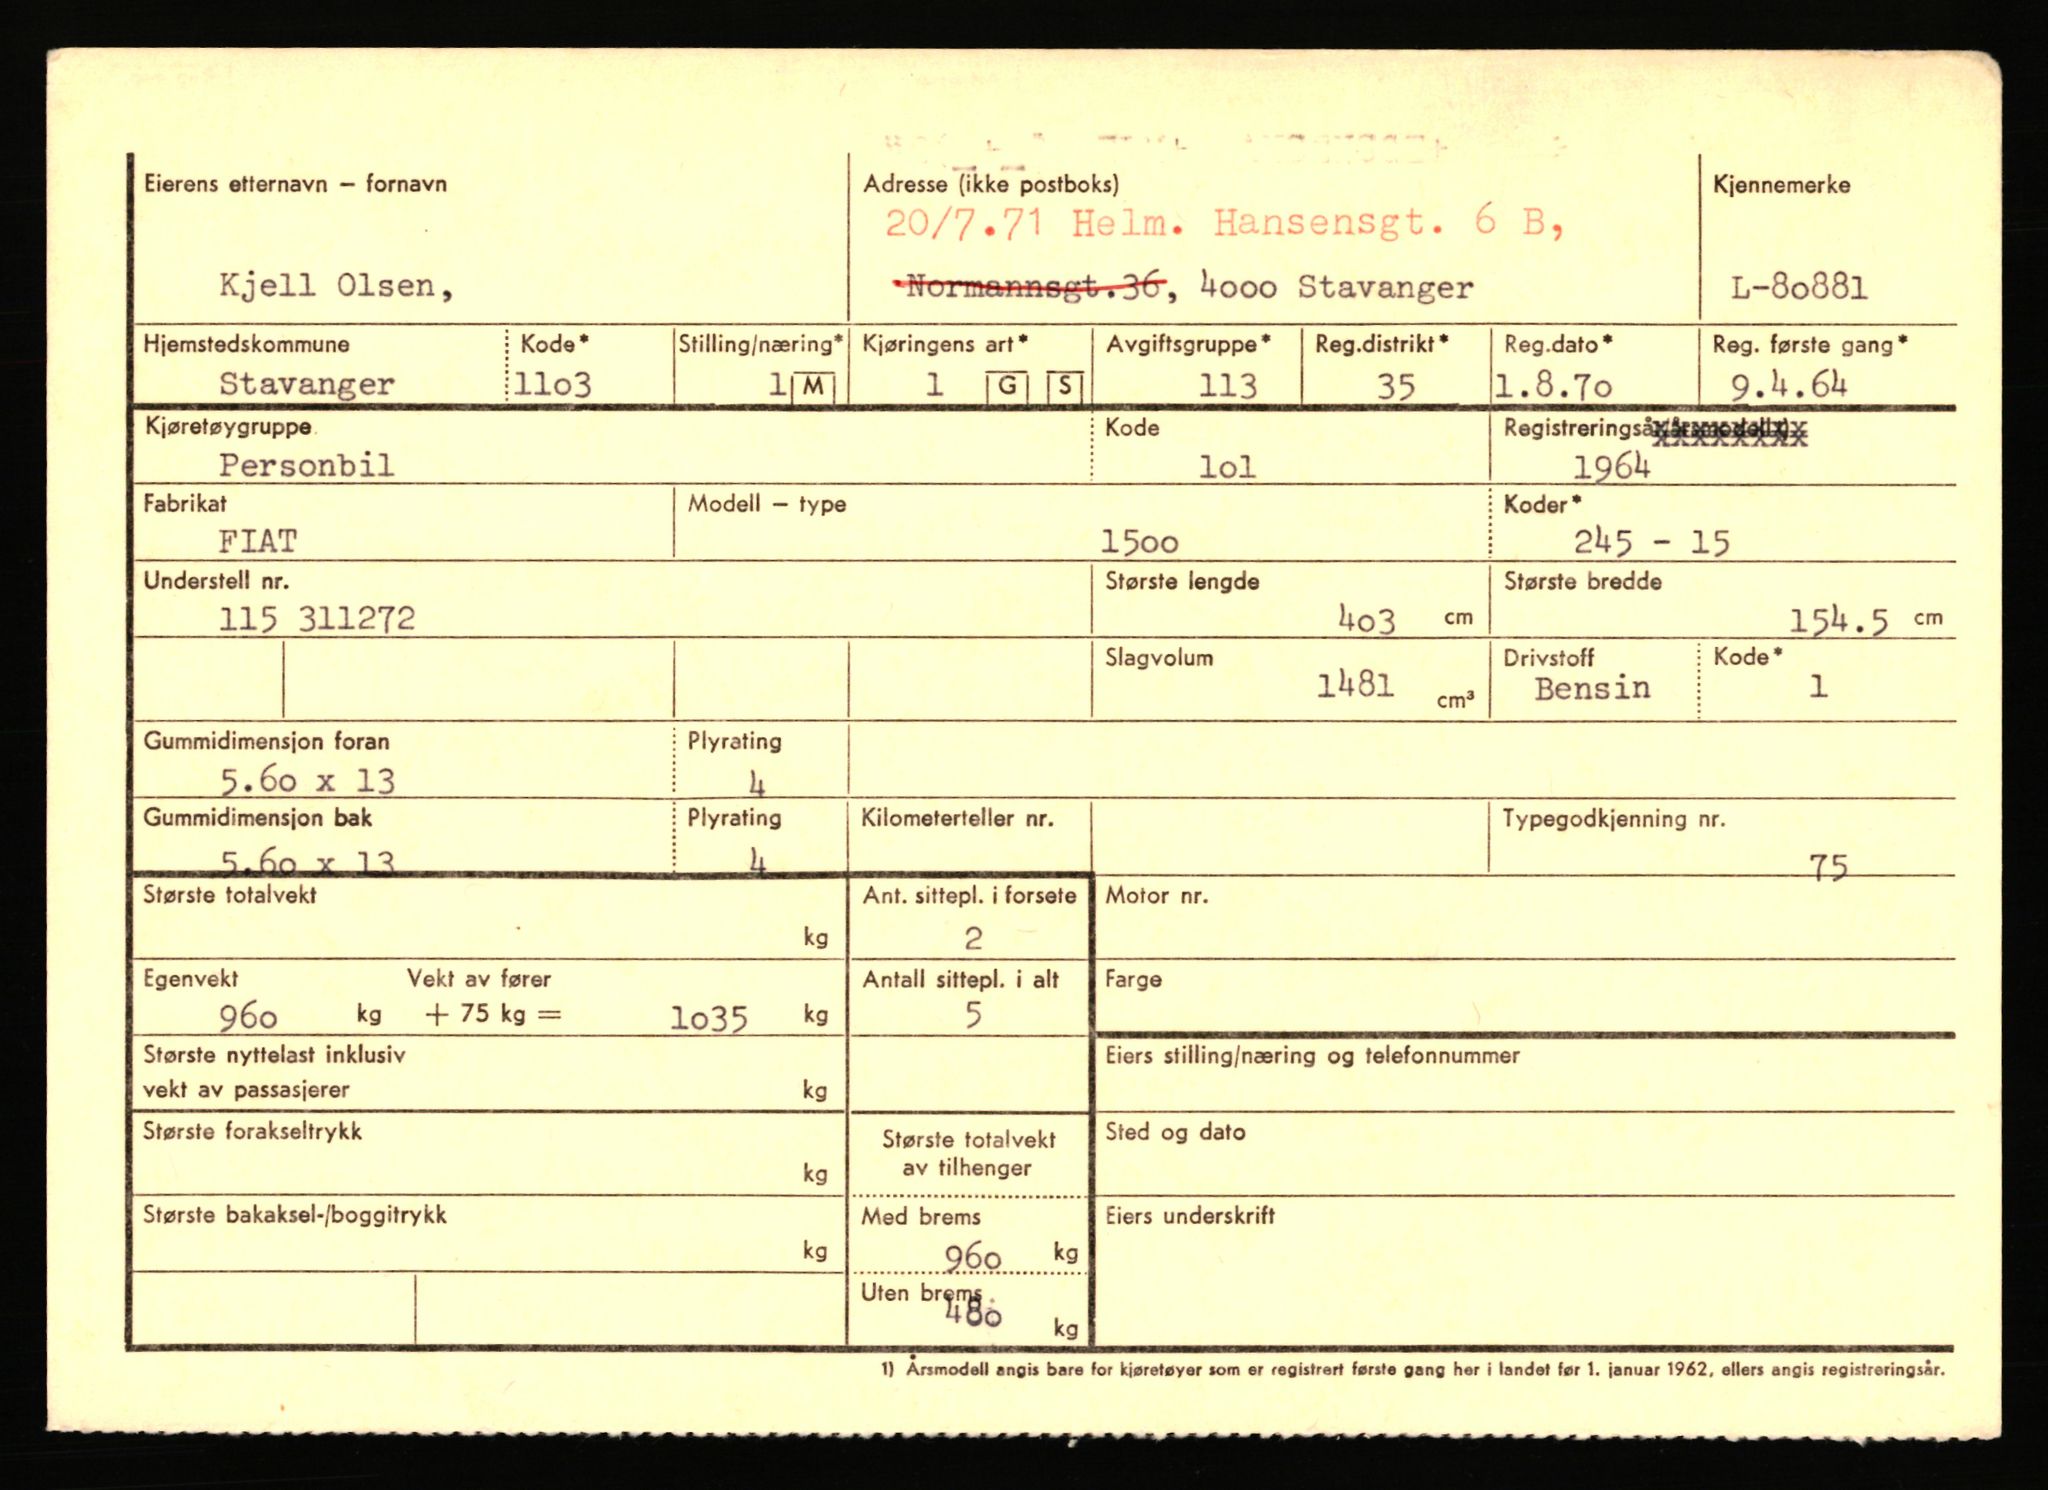 Eierens etternavn – fornavn Adresse (ikke postboks) Kjennemerke
20/7.71 Helm. Hansensgt. 6 B,
Kjell Olsen, Normannsgt.36, 4000 Stavanger L-80881
Hjemstedskommune Kode* Stilling/næring* Kjøringens art* Avgiftsgruppe* Reg.distrikt* Reg.dato* Reg. første gang*
Stavanger 1103 1 M 1 G S 113 35 1.8.70 9.4.64
Kjøretøygruppe Kode Registreringsår/årsmodell1)
Personbil 101 1964
Fabrikat Modell – type Koder*
FIAT 1500 245 - 15
Understell nr. Største lengde Største bredde
115 311272 403 cm 154.5 cm
Slagvolum Drivstoff Kode*
1481 cm³ Bensin 1
Gummidimensjon foran Plyrating
5.60 x 13 4
Gummidimensjon bak Plyrating Kilometerteller nr. Typegodkjenning nr.
5.60 x 13 4 75
Største totalvekt Ant. sittepl. i forsete Motor nr.
kg 2
Egenvekt Vekt av fører Antall sittepl. i alt Farge
960 kg + 75 kg = 1035 kg 5
Største nyttelast inklusiv Eiers stilling/næring og telefonnummer
vekt av passasjerer kg
Største forakseltrykk Største totalvekt Sted og dato
av tilhenger
kg
Største bakaksel-/boggitrykk Med brems Eiers underskrift
kg 960 kg
Uten brems
480 kg
1) Årsmodell angis bare for kjøretøyer som er registrert første gang her i landet før 1. januar 1962, ellers angis registreringsår.